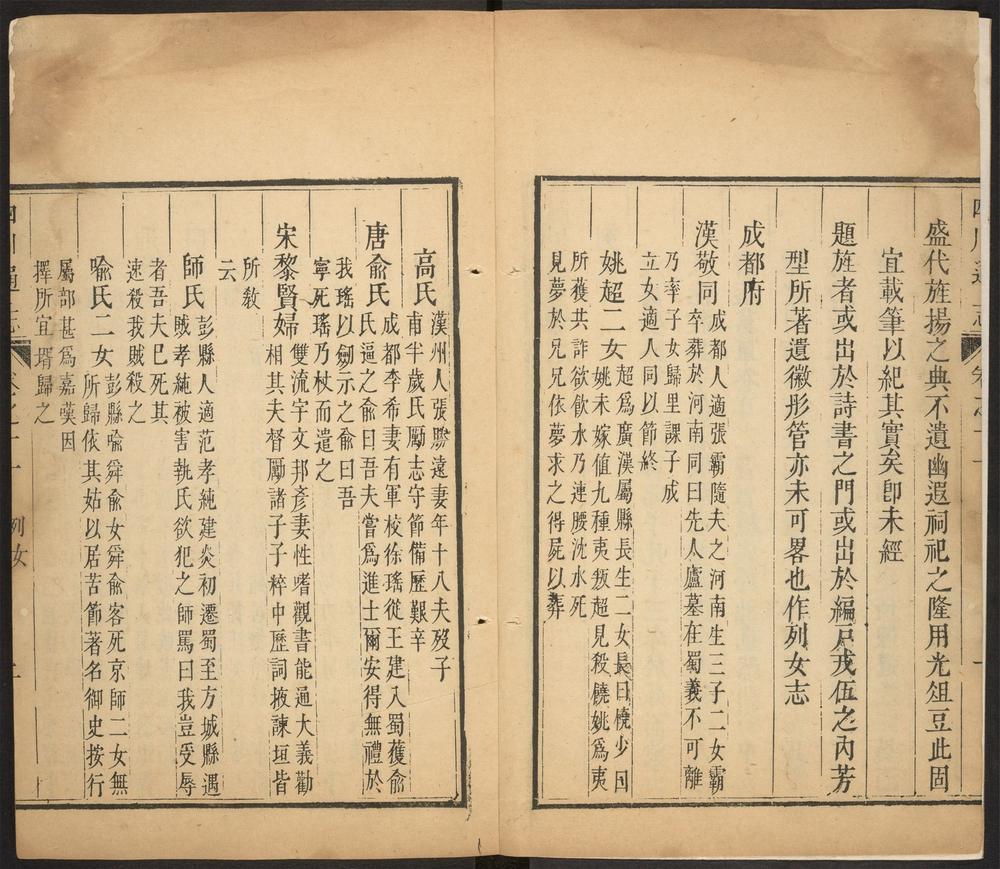 盛代旌揚之典不遺幽遐祠祀之隆用光俎豆此固
宜載筆以紀其實矣卽未經
題旌者或出於詩書之門或出於編戸戎伍之內芳
型所著遺徽彤管亦未可畧也作列女志
成都府
漢敬同
成都人適張霸隨夫之河南生三子二女霸
卒葬於河南同曰先人廬墓在蜀義不可離
乃率子女歸里課子成
立女適人同以節終
姚超二女
超爲廣漢屬縣長生二女長曰㛿少曰
姚未嫁值九種夷叛超見殺㛿姚爲夷
所獲共詐欲飮水乃連腰沈水死
見夢於兄兄依夢求之得屍以葬
高氏
漢州人張驂遠妻年十八夫歿子
甫半歲氏勵志守節備歷艱辛
唐兪氏
成都李希妻有軍校徐瑤從王建入蜀獲兪
氏逼之兪曰吾夫嘗爲進士爾安得無禮於
我瑤以劒示之兪曰吾
寧死瑤乃杖而遣之
宋黎賢婦
雙流宇文邦彥妻性嗜觀書能通大義勸
相其夫督勵諸子子粹中歷詞掖諫垣皆
所敎
云
師氏
彭縣人適范孝純建炎初遷蜀至方城縣遇
賊孝純被害執氏欲犯之師罵曰我豈受辱
者吾夫巳死其
速殺我賊殺之
喩氏二女
彭縣喩舜兪女舜兪客死京師二女無
所歸依其姑以居苦節著名御史按行
屬部甚爲嘉葉因
擇所宜壻歸之
四川通志
卷之十一
列女